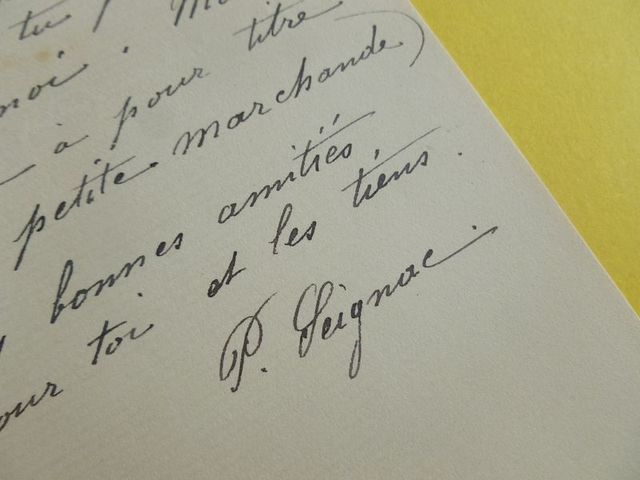 tu
moi. M
à pour titre
petite marchande)
bonnes amitiés
our toi et les tiens.
P. Seignac.